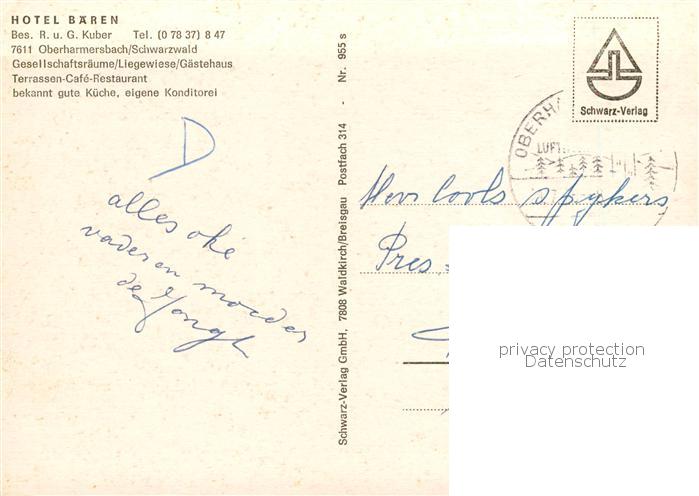 HOTEL BÄREN
Bes. R. u. G. Kuber Tel. (0 78 37) 8 47
7611 Oberharmersbach/Schwarzwald
Gesellschaftsräume/Liegewiese/Gästehaus
Terrassen-Café-Restaurant
bekannt gute Küche, eigene Konditorei
D
alles oké
vader en moeder
de Jongh
Schwarz-Verlag GmbH, 7808 Waldkirch/Breisgau Postfach 314 - Nr. 955 s
Schwarz-Verlag
OBERHA
LUFT
spykers
Pres.
privacy protection
Datenschutz